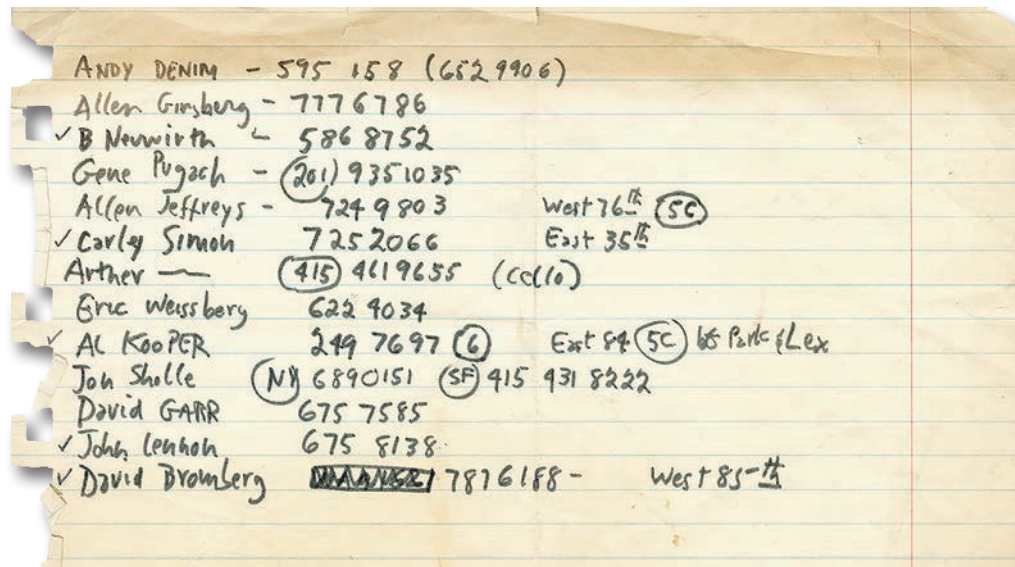 ANDY DENIM - 595 158 (652 9906)
Allen Ginsberg - 777 6786
✓ B Neuwirth - 586 8752
Gene Pugach - (201) 935 1035
Allen Jeffreys - 724 9803 West 76th (5C)
✓ Carley Simon 725 2066 East 35th
Arther — (415) 461 9655 (cello)
Eric Weissberg 622 4034
✓ AL KOOPER 249 7697 (6) East 84 (5C) bt Park & Lex
Jon Sholle (NY) 6890151 (SF) 415 431 8222
David GARR 675 7585
✓ John Lennon 675 8138
✓ David Bromberg 787 6188 - West 85th